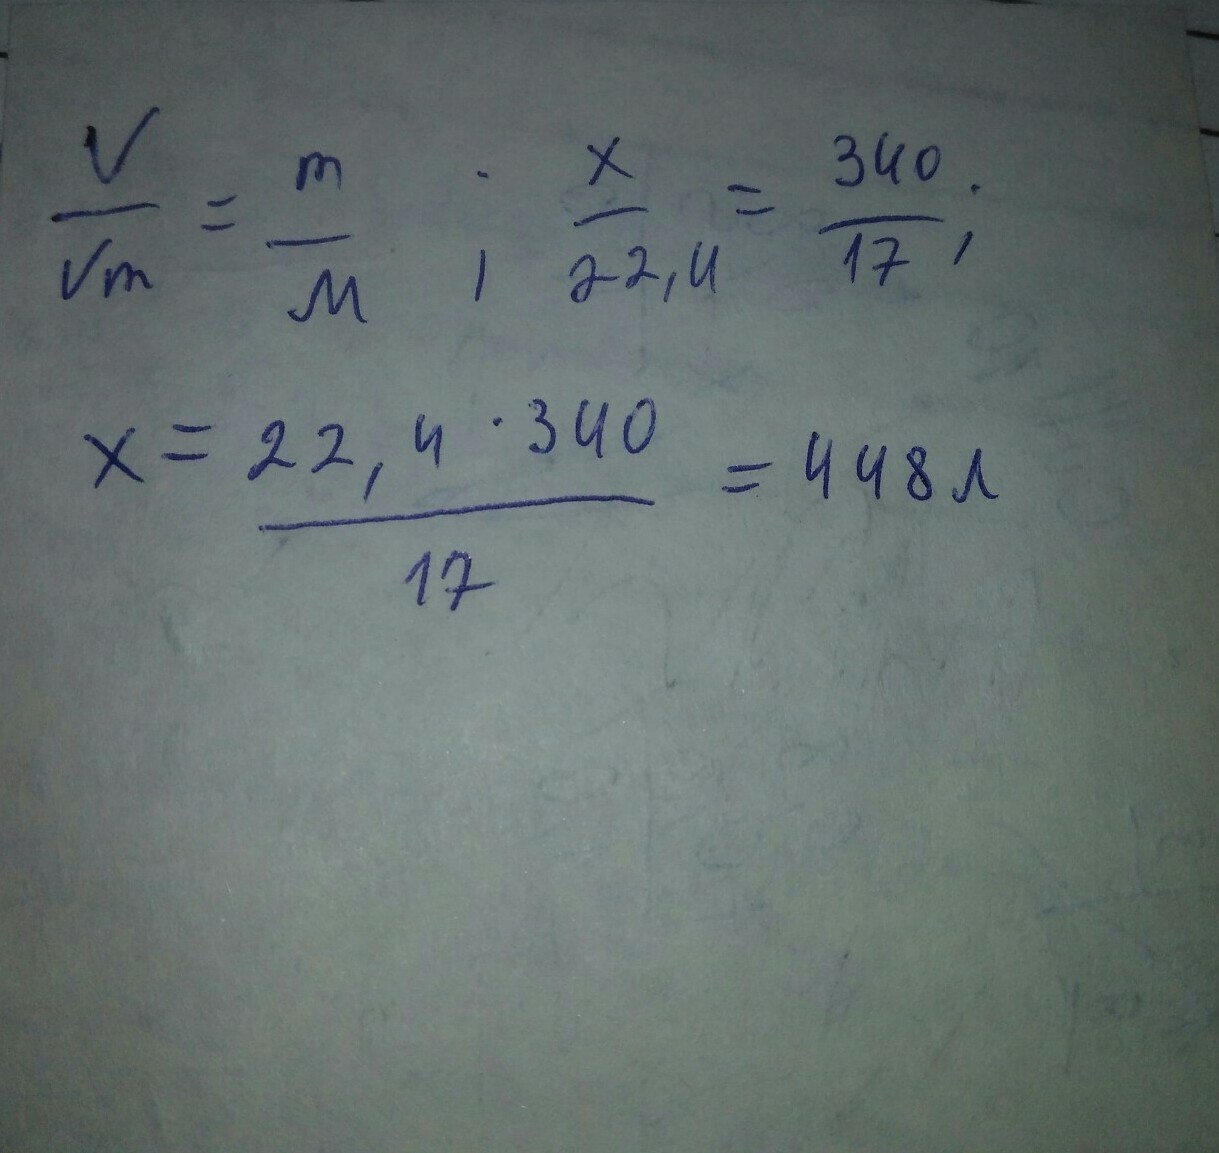 V/Vm = m/M ; x/22,4 = 340/17 ;
x = 22,4 · 340/17 = 448 л